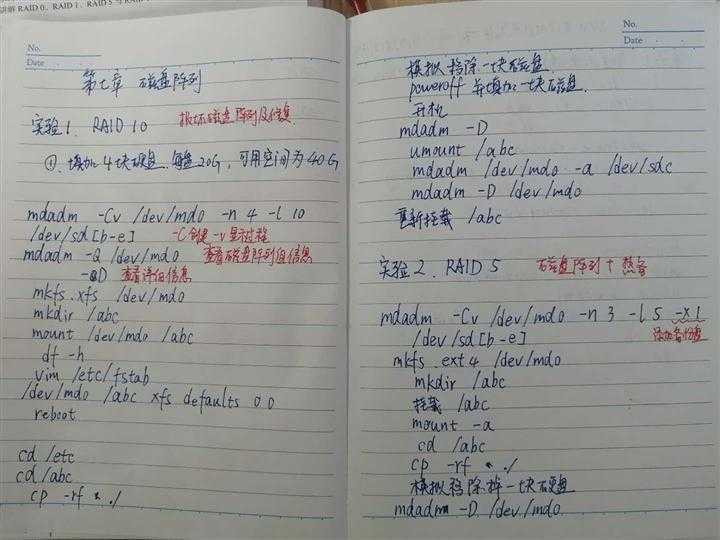 讲解 RAID 0、RAID 1、RAID 5 与
No.
Date
第七章 磁盘阵列
实验1. RAID 10 损坏磁盘阵列及修复
①. 填加4块硬盘. 每盘20G, 可用空间为40G
mdadm -Cv /dev/md0 -n 4 -l 10
/dev/sd[b-e] -C创建 -v显示过程
mdadm -Q /dev/md0 查看磁盘阵列组信息
-D 查看详细信息
mkfs.xfs /dev/md0
mkdir /abc
mount /dev/md0 /abc
df -h
vim /etc/fstab
/dev/md0 /abc xfs defaults 0 0
reboot
cd /etc
cd /abc
cp -rf * ./
No.
Date
模拟移除一块磁盘
poweroff 并填加一块磁盘
开机
mdadm -D
umount /abc
mdadm /dev/md0 -a /dev/sdc
mdadm -D /dev/md0
重新挂载 /abc
实验2. RAID 5 磁盘阵列+热备
mdadm -Cv /dev/md0 -n 3 -l 5 -x 1
/dev/sd[b-e] 添加备份盘
mkfs.ext4 /dev/md0
mkdir /abc
挂载 /abc
mount -a
cd /abc
cp -rf * ./
模拟移除掉一块硬盘
mdadm -D /dev/md0